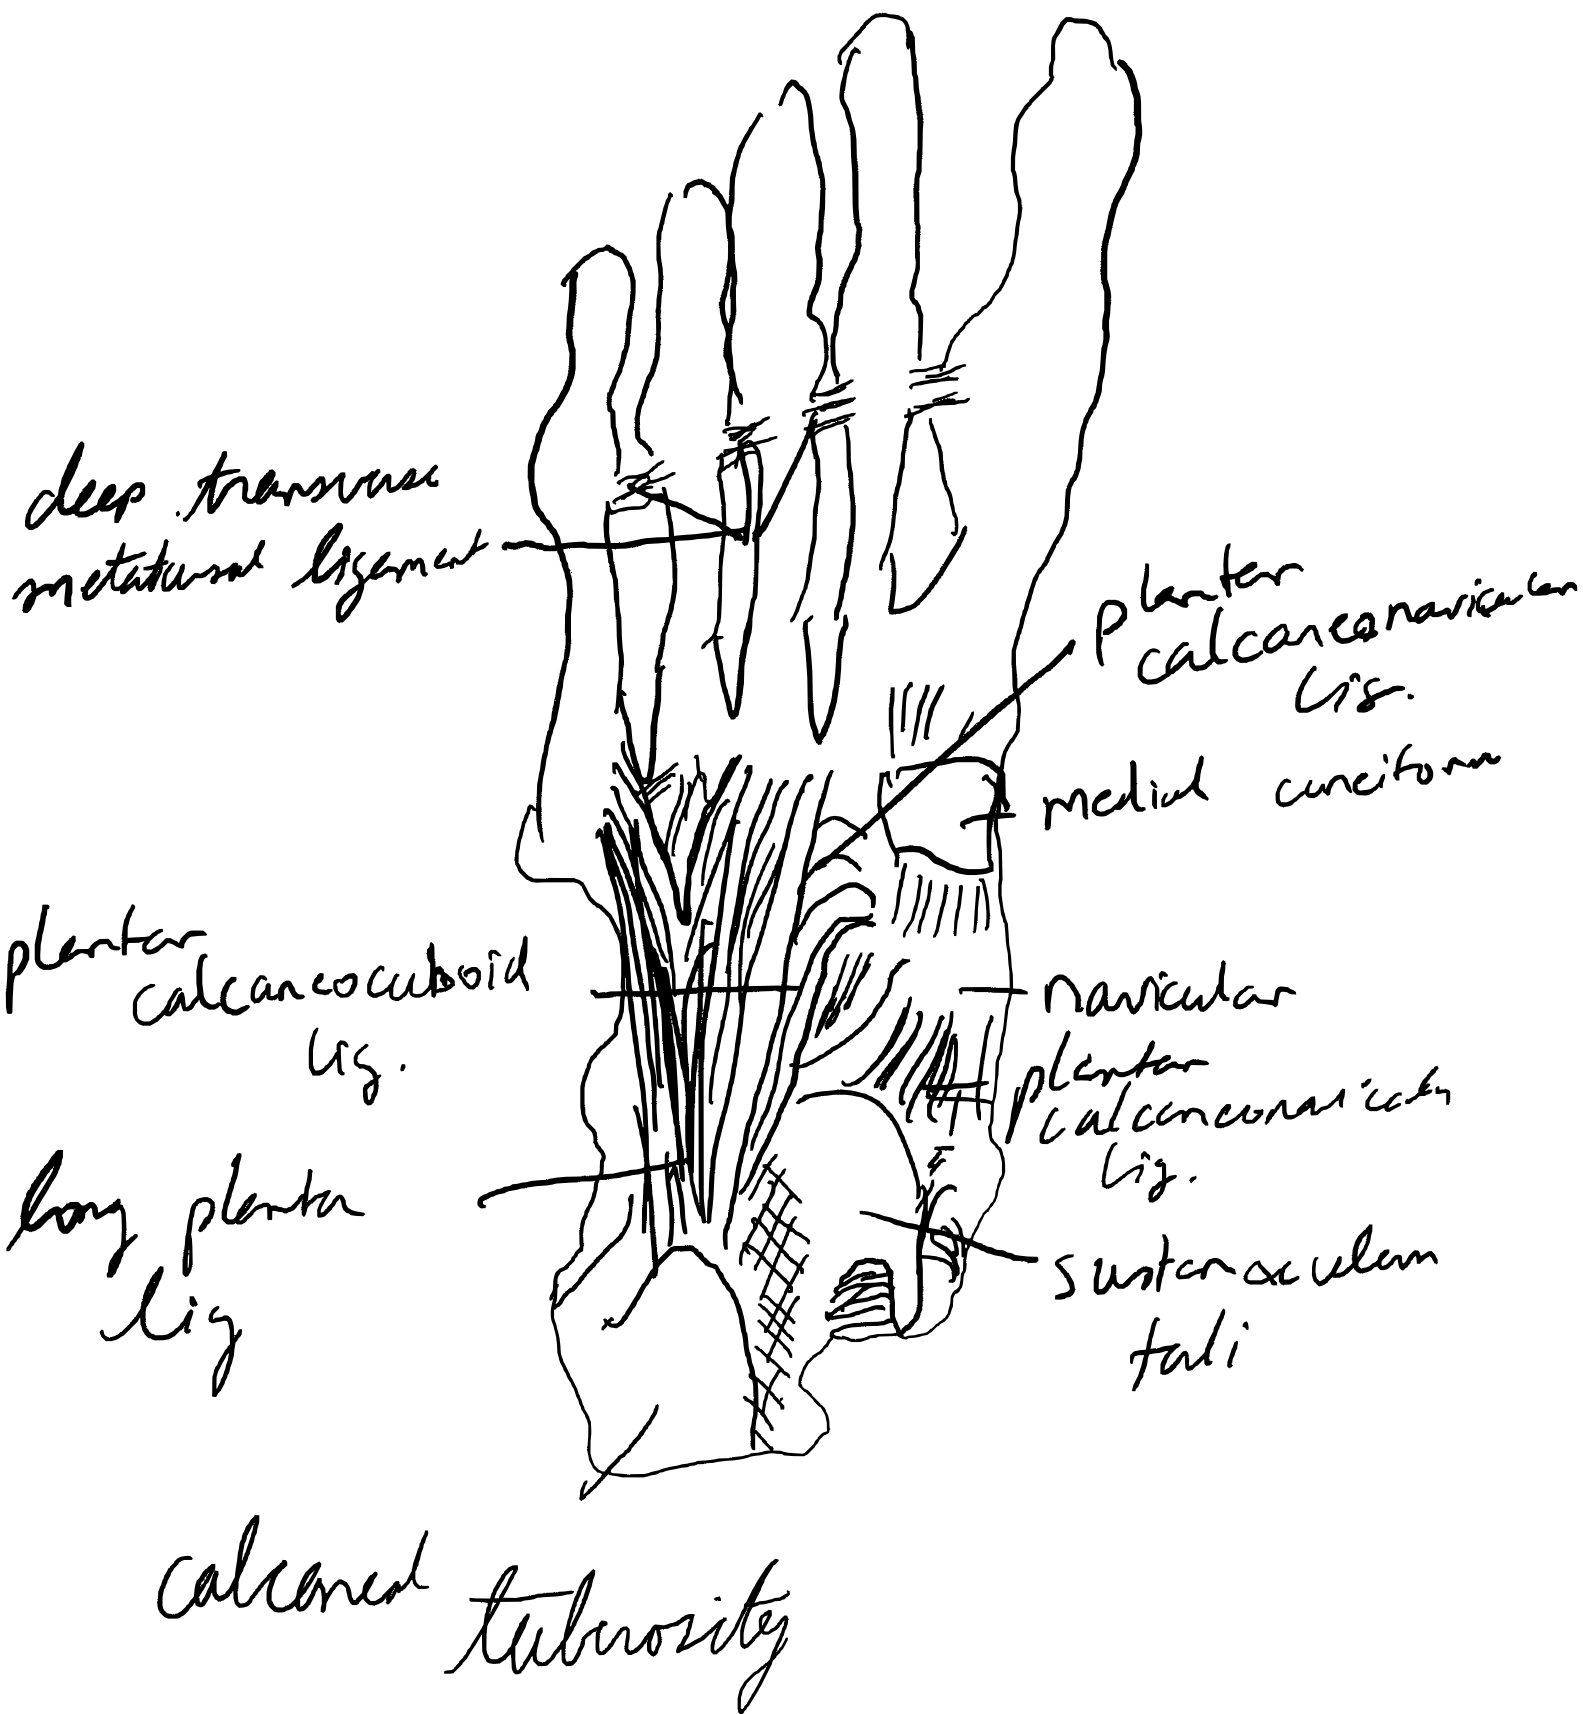 deep transverse
metatarsal ligament
plantar
calcaneonavicular
lig.
medial cuneiform
plantar
calcaneocuboid
lig.
navicular
plantar
calcaneonavicular
lig.
long plantar
lig
sustanaculum
tali
calcaneal
tuberosity